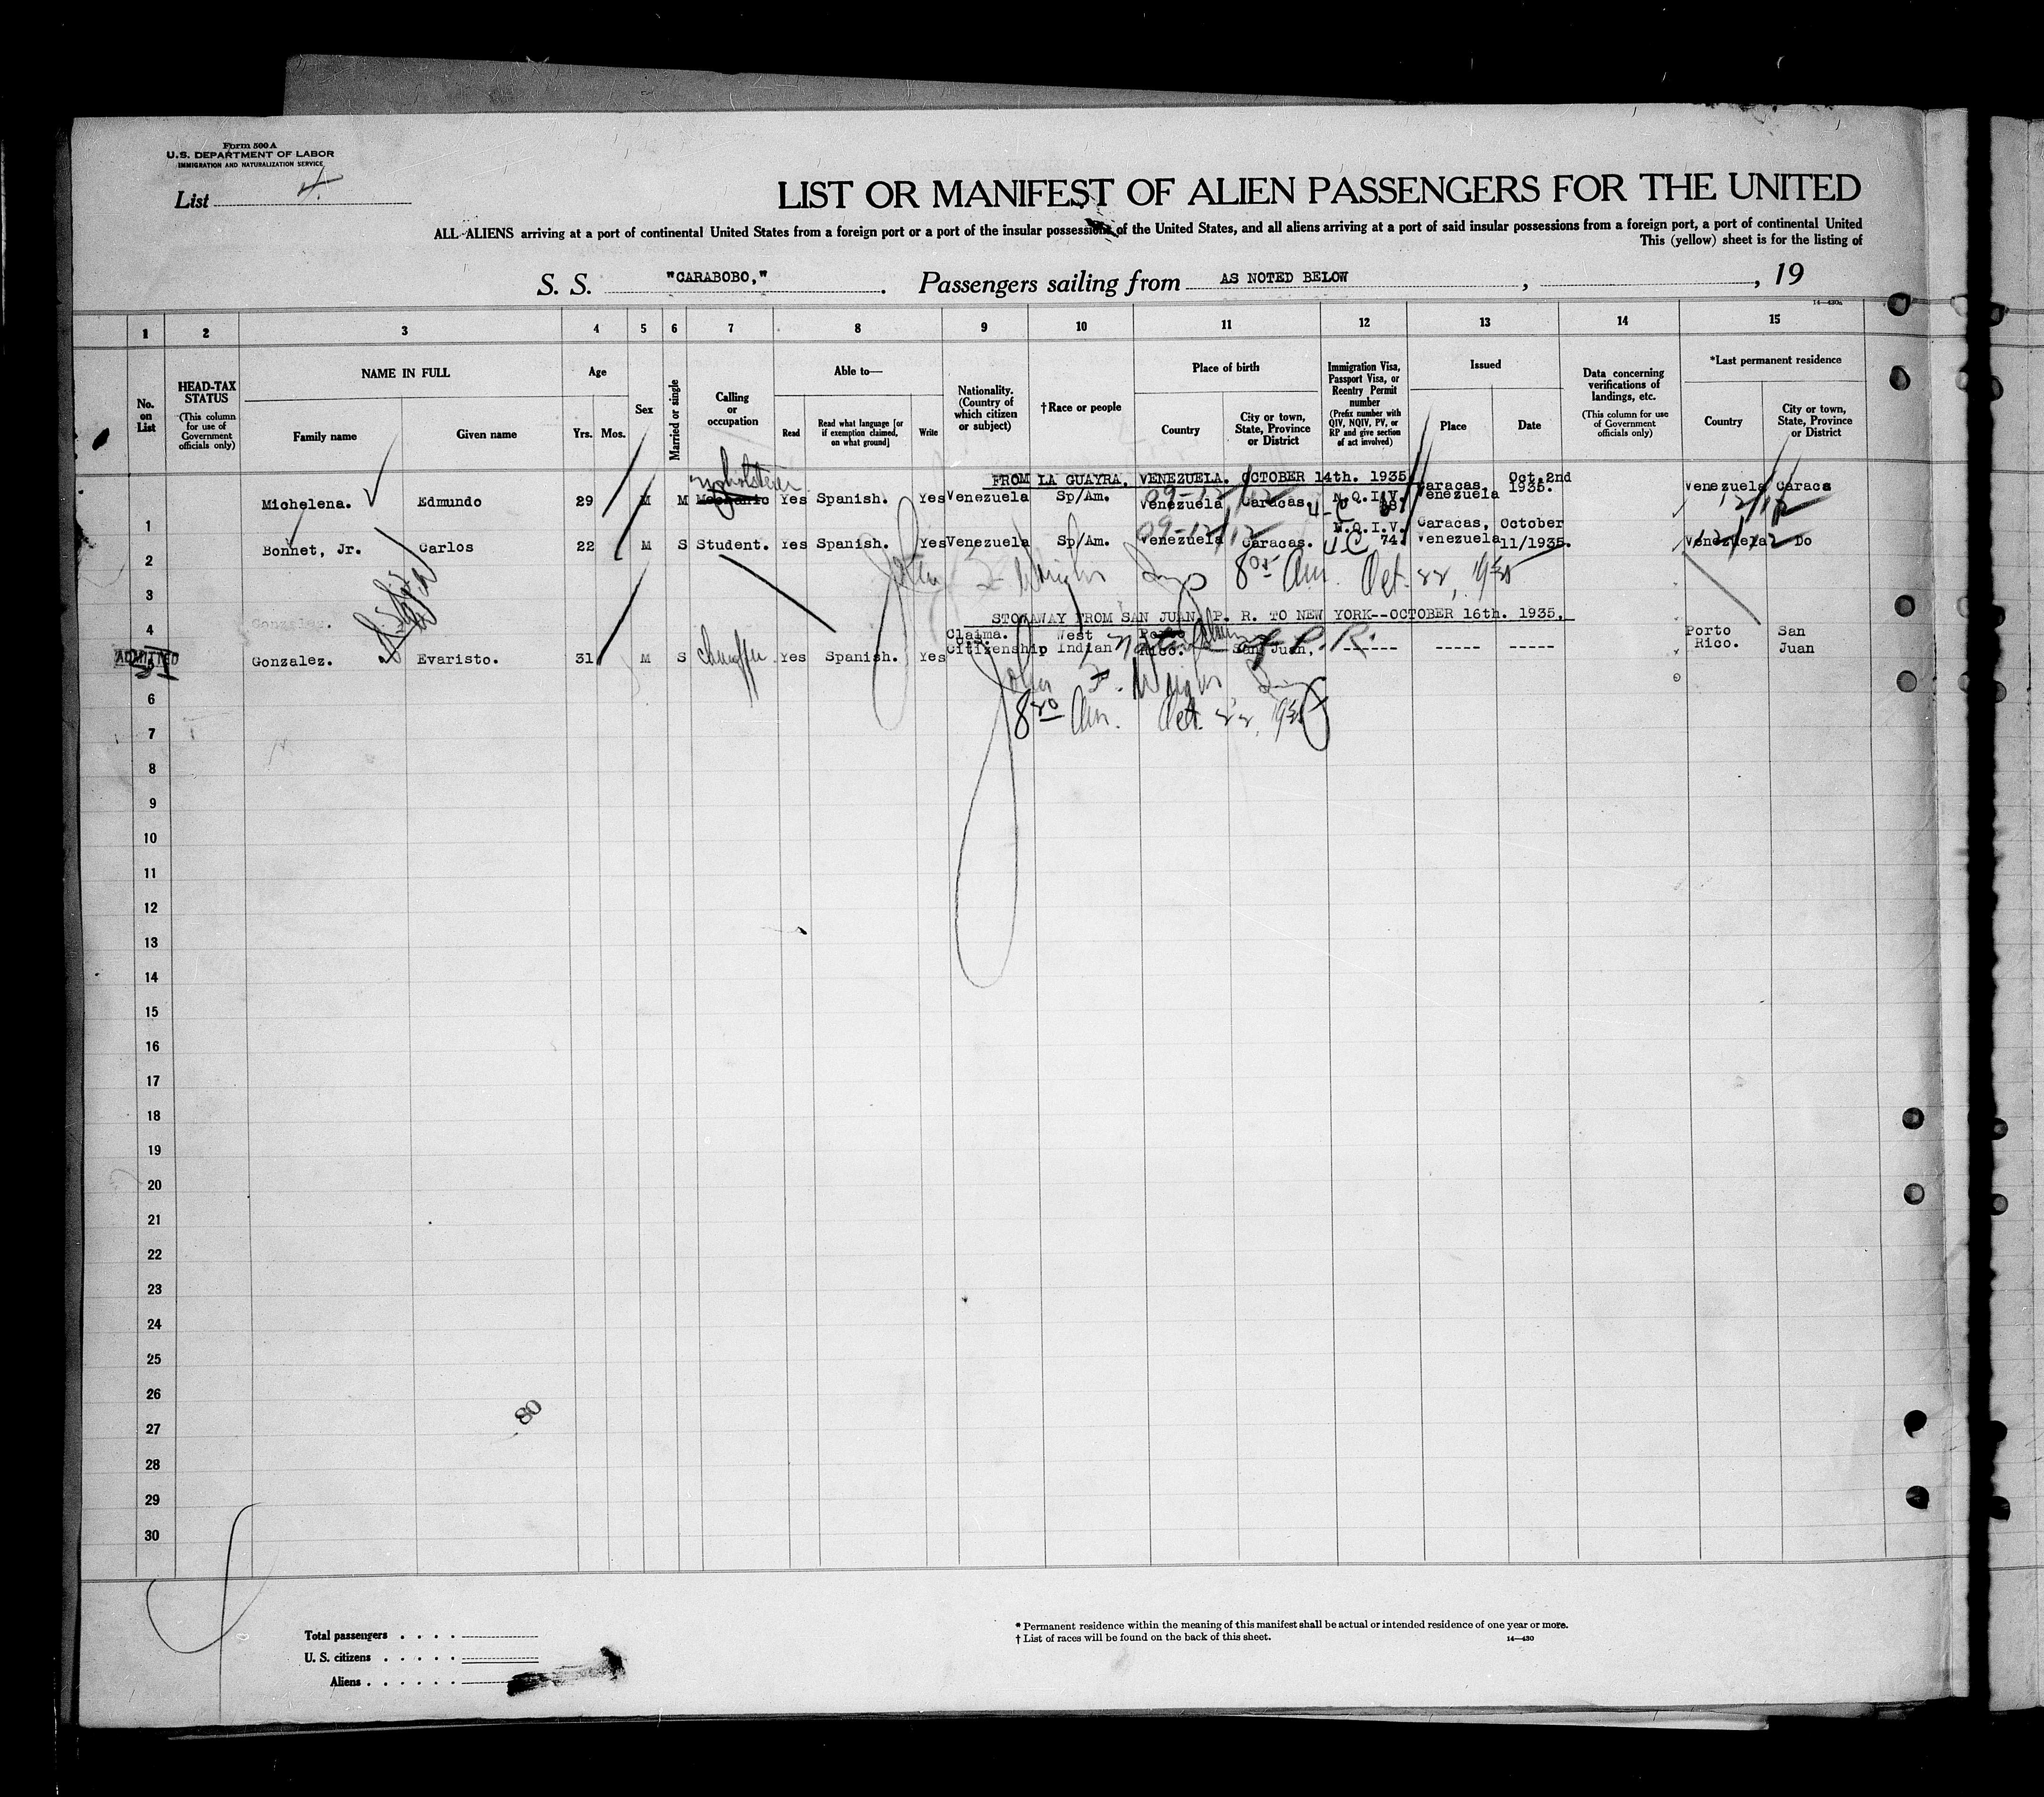 Form 500 A
U.S. DEPARTMENT OF LABOR
IMMIGRATION AND NATURALIZATION SERVICE
List 4.
LIST OR MANIFEST OF ALIEN PASSENGERS FOR THE UNITED
ALL ALIENS arriving at a port of continental United States from a foreign port or a port of the insular possessions of the United States, and all aliens arriving at a port of said insular possessions from a foreign port, a port of continental United
This (yellow) sheet is for the listing of
S. S. "CARABOBO," . Passengers sailing from AS NOTED BELOW , , 19
14—430a
1 2 3 4 5 6 7 8 9 10 11 12 13 14 15
No. on List
HEAD-TAX STATUS
(This column for use of Government officials only)
NAME IN FULL
Family name
Given name
Age
Yrs. Mos.
Sex
Married or single
Calling or occupation
Able to—
Read
Read what language [or if exemption claimed, on what ground]
Write
Nationality. (Country of which citizen or subject)
†Race or people
Place of birth
Country
City or town, State, Province or District
Immigration Visa, Passport Visa, or Reentry Permit number
(Prefix number with QIV, NQIV, PV, or RP and give section of act involved)
Issued
Place
Date
Data concerning verifications of landings, etc.
(This column for use of Government officials only)
*Last permanent residence
Country
City or town, State, Province or District
FROM LA GUAYRA, VENEZUELA. OCTOBER 14th. 1935
upholsterer
Michelena. Edmundo 29 M M Mechanic Yes Spanish. Yes Venezuela Sp/Am. Venezuela Caracas. N.Q.I.V. Caracas, Venezuela Oct.2nd 1935. Venezuela Caracas
09-12/12
12/12
1
Bonnet, Jr. Carlos 22 M S Student. Yes Spanish. Yes Venezuela Sp/Am. Venezuela Caracas. N.Q.I.V. 74. Caracas, Venezuela October 11/1935. Venezuela Do
09-12/12
2
John F. Wright Insp 8 05 Am. Oct. 22, 1935
3
STOWAWAY FROM SAN JUAN, P. R. TO NEW YORK--OCTOBER 16th. 1935.
Gonzalez.
4
ADMITTED
Gonzalez. Evaristo. 31 M S Chauffer Yes Spanish. Yes Claims. Citizenship West Indian Porto Rico. San Juan, ------ ----- ----- Porto Rico. San Juan
P.R.
5
John F. Wright Insp
8 20 Am. Oct. 22, 1935
6
7
8
9
10
11
12
13
14
15
16
17
18
19
20
21
22
23
24
25
26
80
27
28
29
30
Total passengers . . . .
U. S. citizens . . . . .
Aliens . . . . . .
* Permanent residence within the meaning of this manifest shall be actual or intended residence of one year or more.
† List of races will be found on the back of this sheet. 14—430